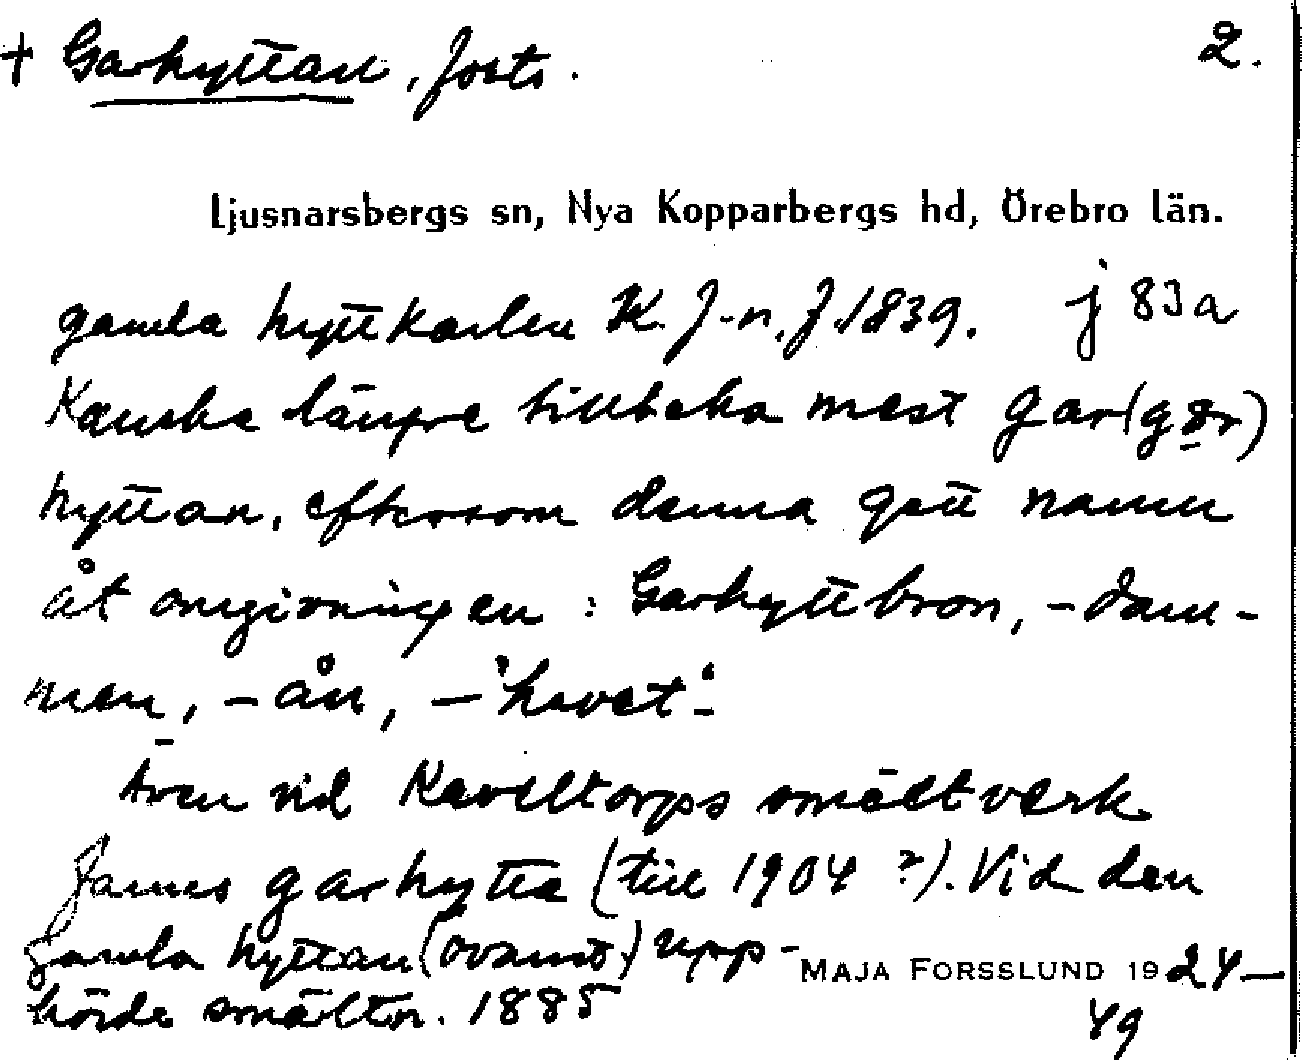 + Garhyttan, forts. 2.
Ljusnarsbergs sn, Nya Kopparbergs hd, Örebro län.
gamla hyttkarlen K. J-n, f. 1839. j 83a
Kanske längre tillbaka mest gar(gær)
hyttan, eftersom denna gett namn
åt omgivningen: Garhyttbron, -dam-
men, -ån, -"havet".
Även vid Kaveltorps smältverk
fanns garhytta (till 1904 ?). Vid den
gamla hyttan (ovannt.) upp-
hörde smältn. 1885
MAJA FORSSLUND 1924-
49